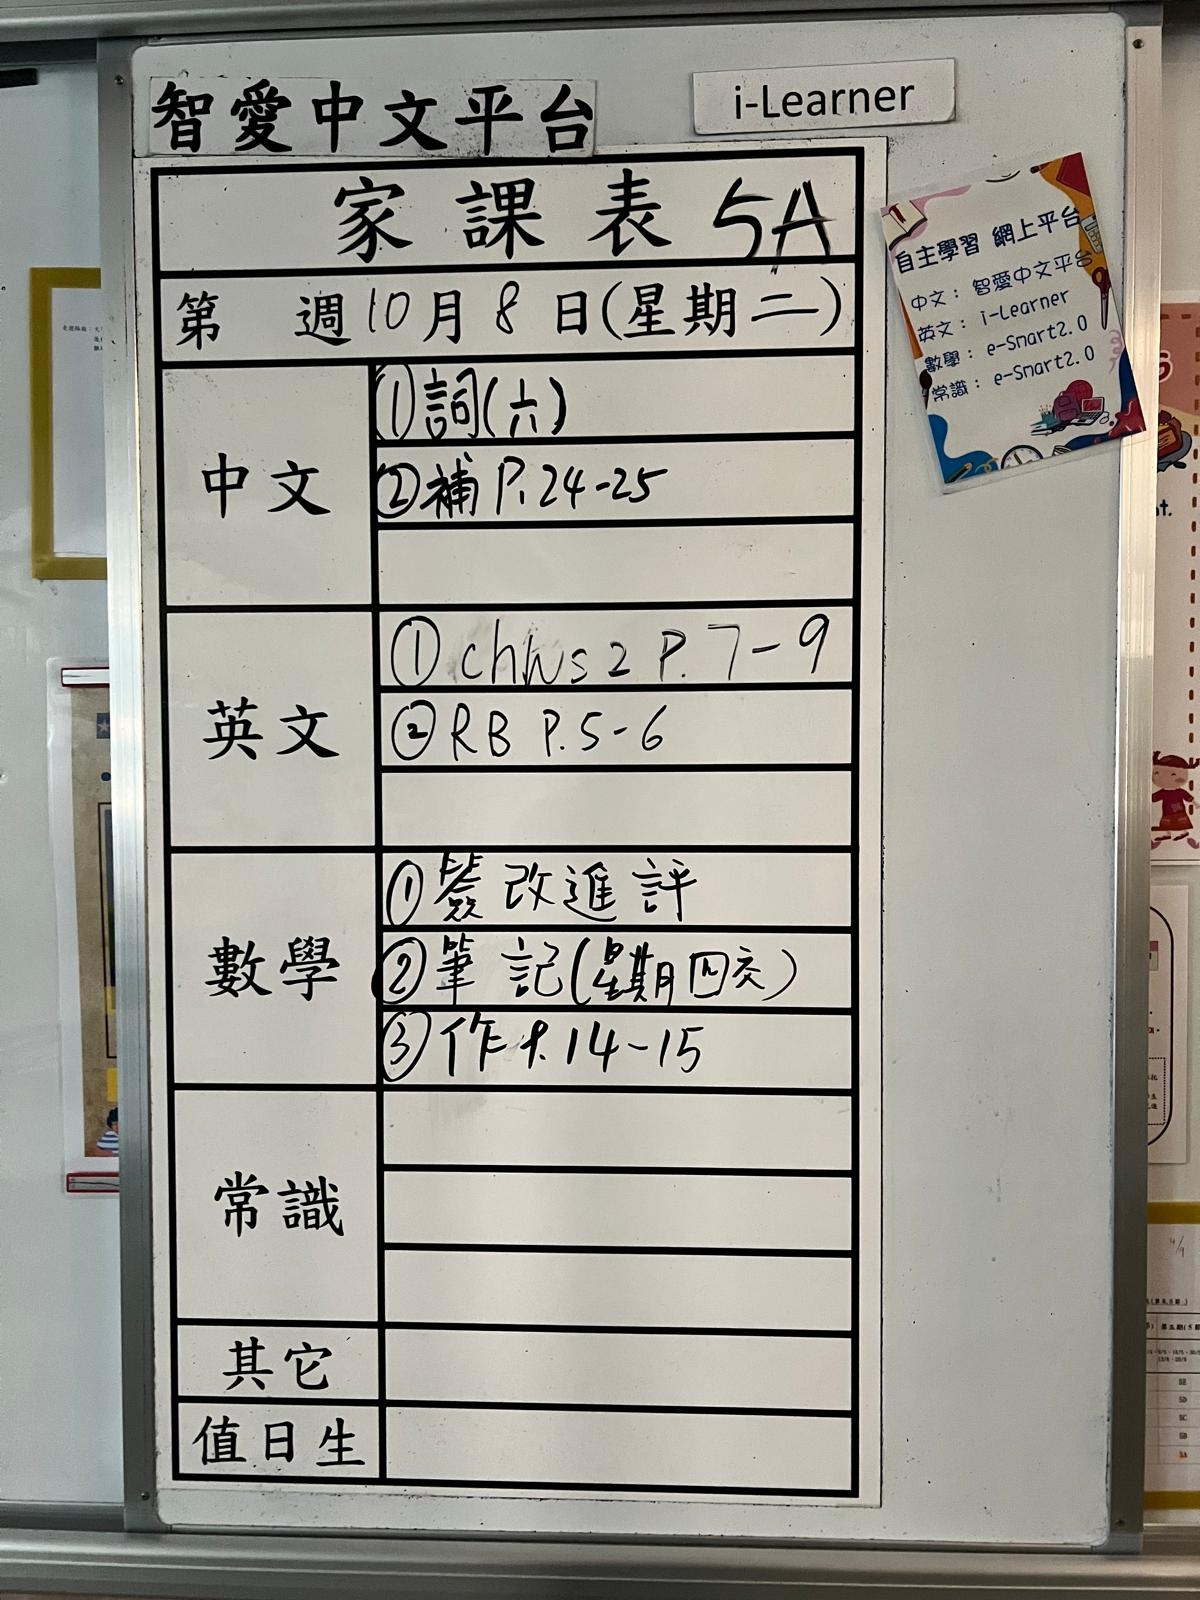 智愛中文平台
i-Learner
家課表 5A
第 週 10月8日(星期二)
中文
①詞(六)
②補 P.24-25
英文
①chWs2 P.7-9
②RB P.5-6
數學
①簽改進評
②筆記(星期四交)
③作 P.14-15
常識
其它
值日生
自主學習 網上平台
中文：智愛中文平台
英文：i-Learner
數學：e-Smart2.0
常識：e-Smart2.0